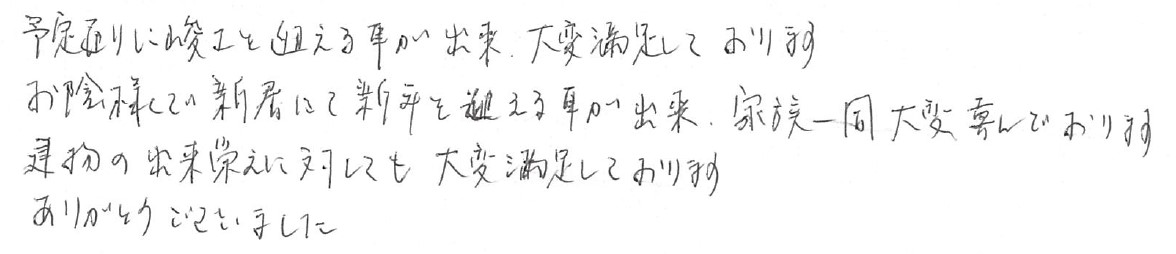 予定通りに竣工を迎える事が出来、大変満足しております
お陰様で新居にて新年を迎える事が出来、家族一同大変喜んでおります
建物の出来栄えに対しても大変満足しております
ありがとうございました